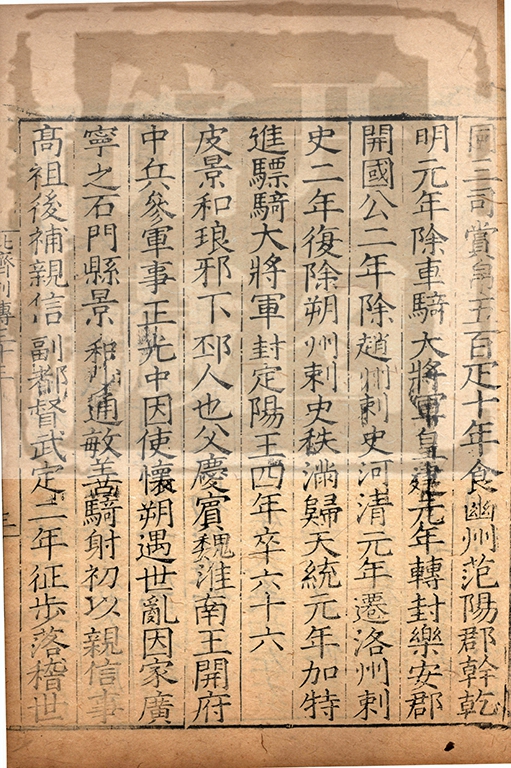 同三司賞帛五百疋十年食幽州范陽郡幹乾
明元年除車騎大將軍皇建元年轉封樂安郡
開國公二年除趙州刺史河清元年遷洛州刺
史二年復除朔州刺史秩滿歸天統元年加特
進驃騎大將軍封定陽王四年卒六十六
皮景和琅邪下邳人也父慶賔魏淮南王開府
中兵參軍事正光中因使懷朔遇世亂因家廣
寧之石門縣景和少通敏善騎射初以親信事
髙祖後補親信副都督武定二年征步落稽世
北齊列傳三十三
三